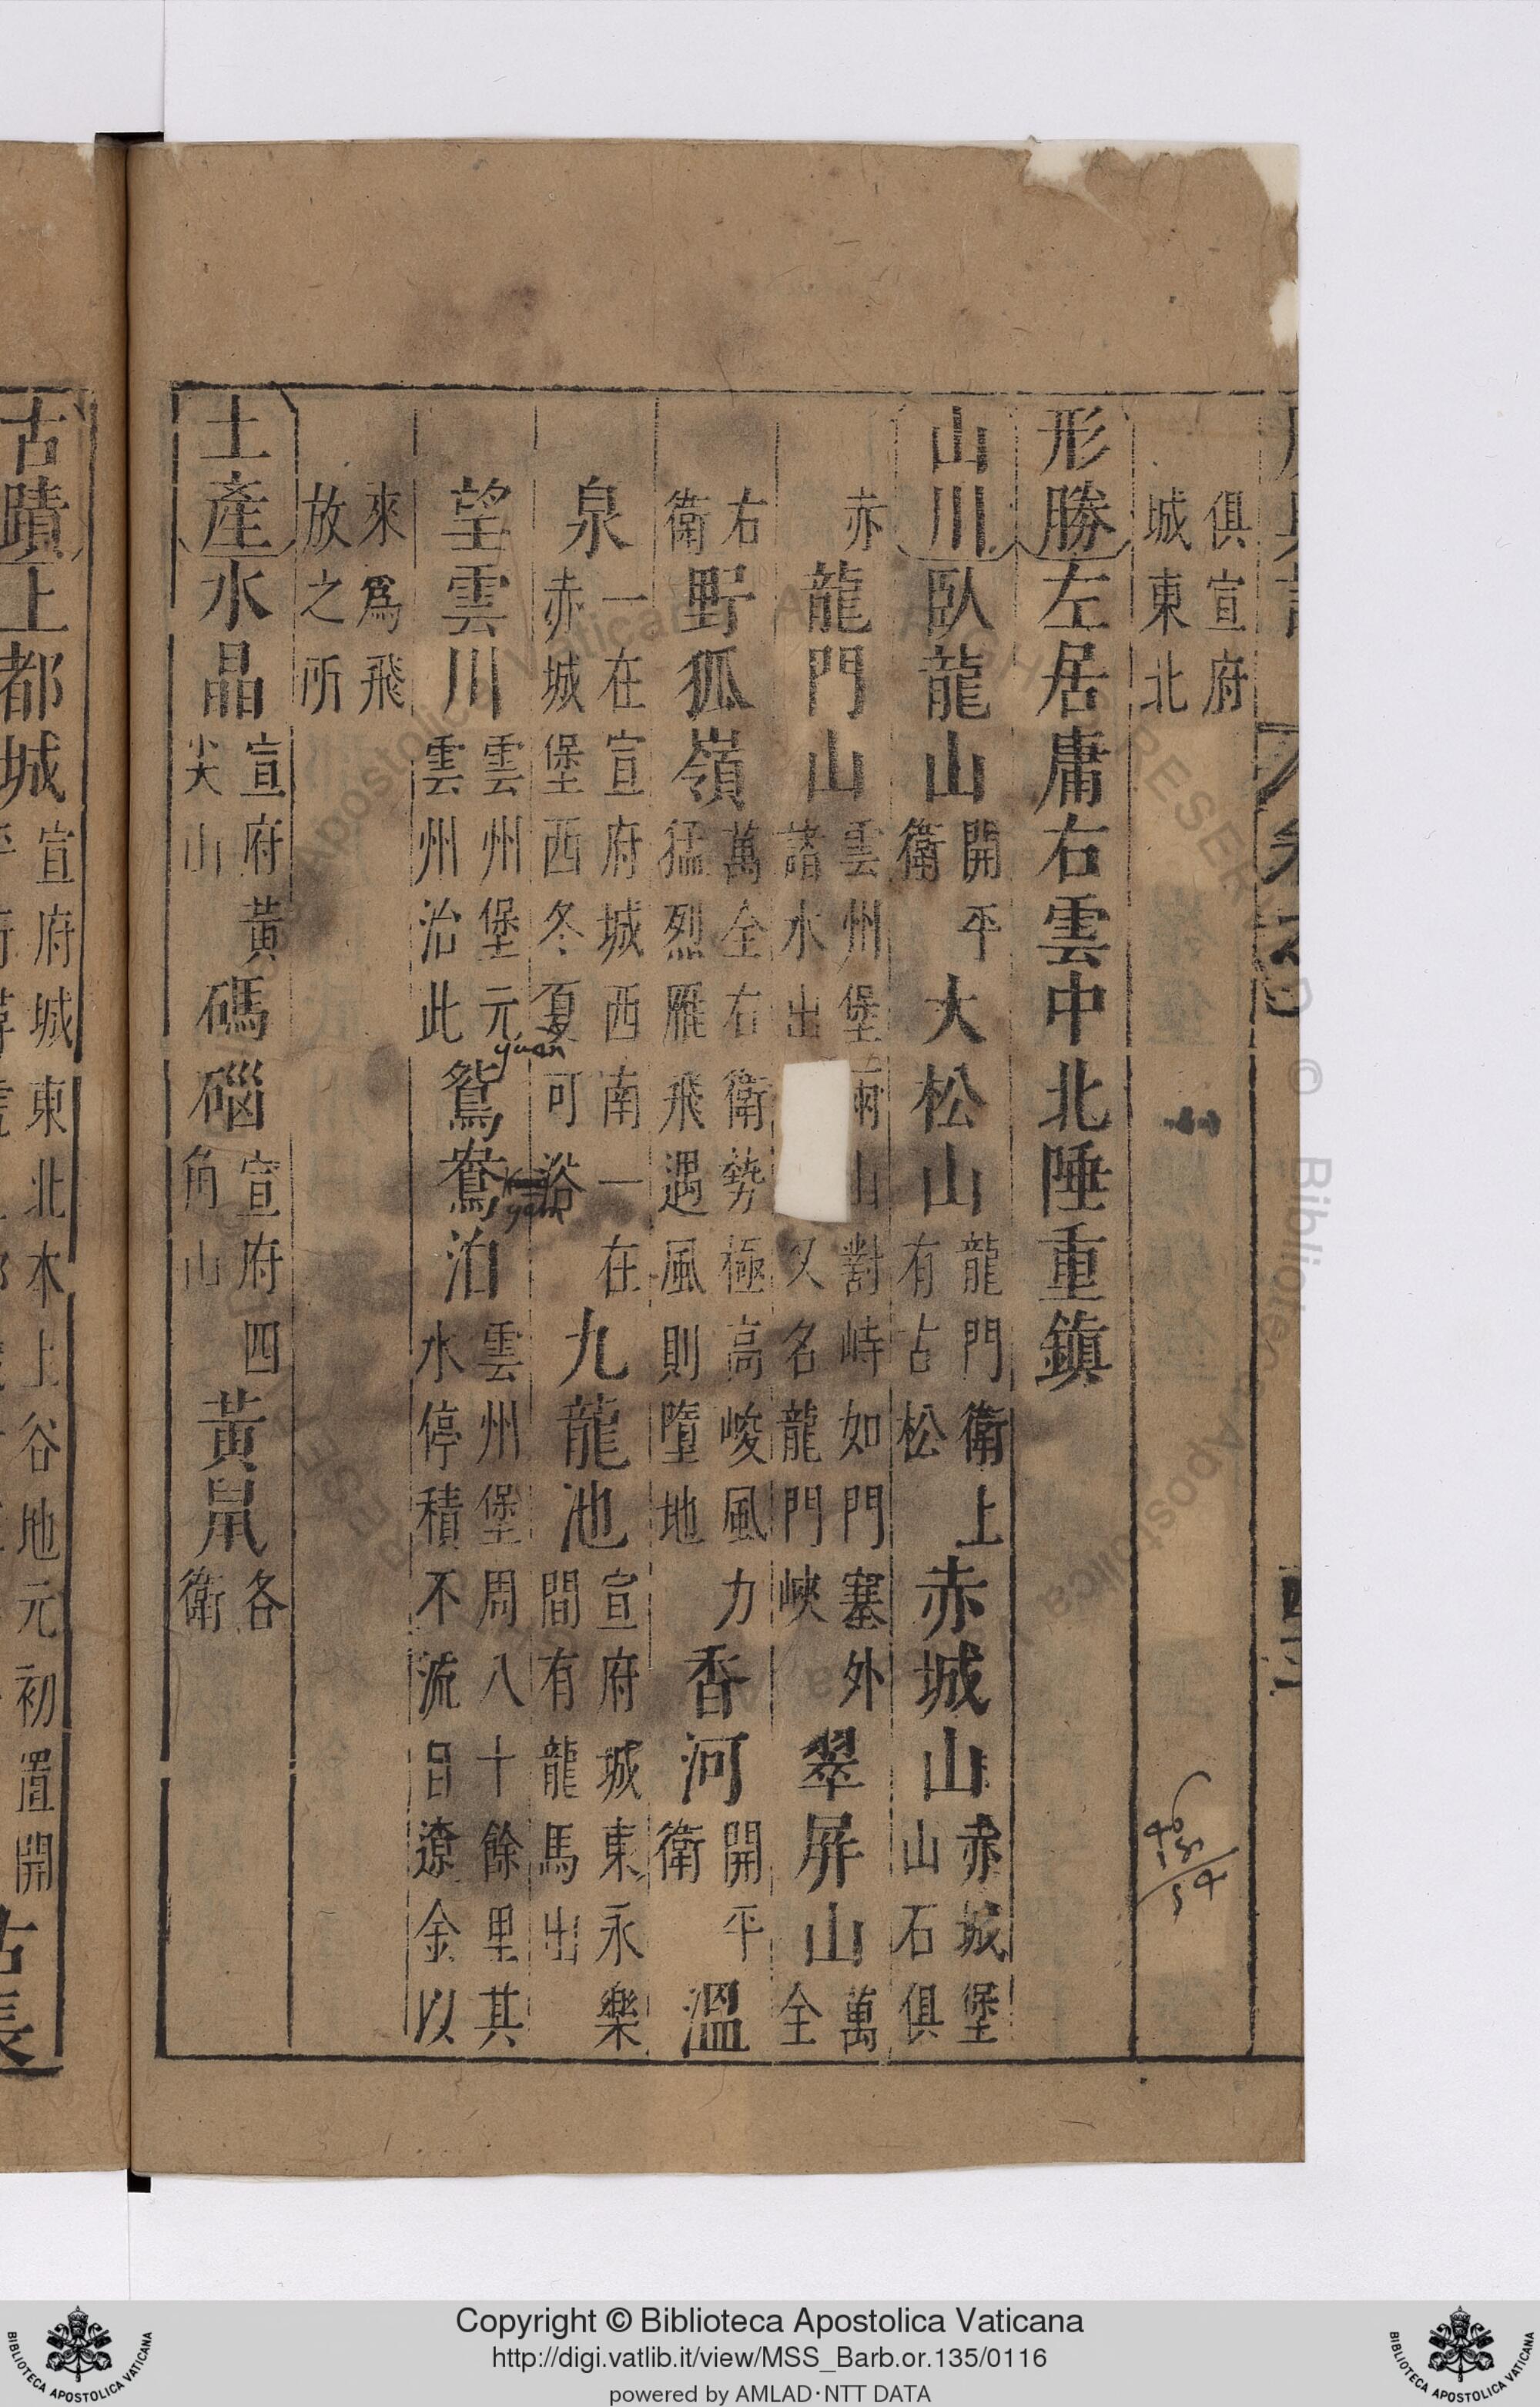 俱宣府
城東北
形勝左居庸右雲中北陲重鎮
山川臥龍山開平衛大松山龍門衛上有古松赤城山赤城堡山石俱
亦龍門山雲州堡兩山對峙如門塞外諸水出又名龍門峽翠屏山萬全
右衛野狐嶺萬全右衛勢極高峻風力猛烈雁飛遇風則墮地香河開平衛溫
泉一在宣府城西南一在赤城堡西冬夏可浴九龍池宣府城東永樂間有龍馬出
望雲川雲州堡元雲州治此鴛鴦泊雲州堡周八十餘里其水停積不流昔遼金以
yuan
yam
來為飛
放之所
土產水晶宣府黃尖山碼碯宣府四角山黃鼠各衛
古蹟上都城
宣府城東北本上谷地元初置開
Copyright © Biblioteca Apostolica Vaticana
http://digi.vatlib.it/view/MSS_Barb.or.135/0116
powered by AMLAD·NTT DATA
BIBLIOTECA APOSTOLICA VATICANA
BIBLIOTECA APOSTOLICA VATICANA